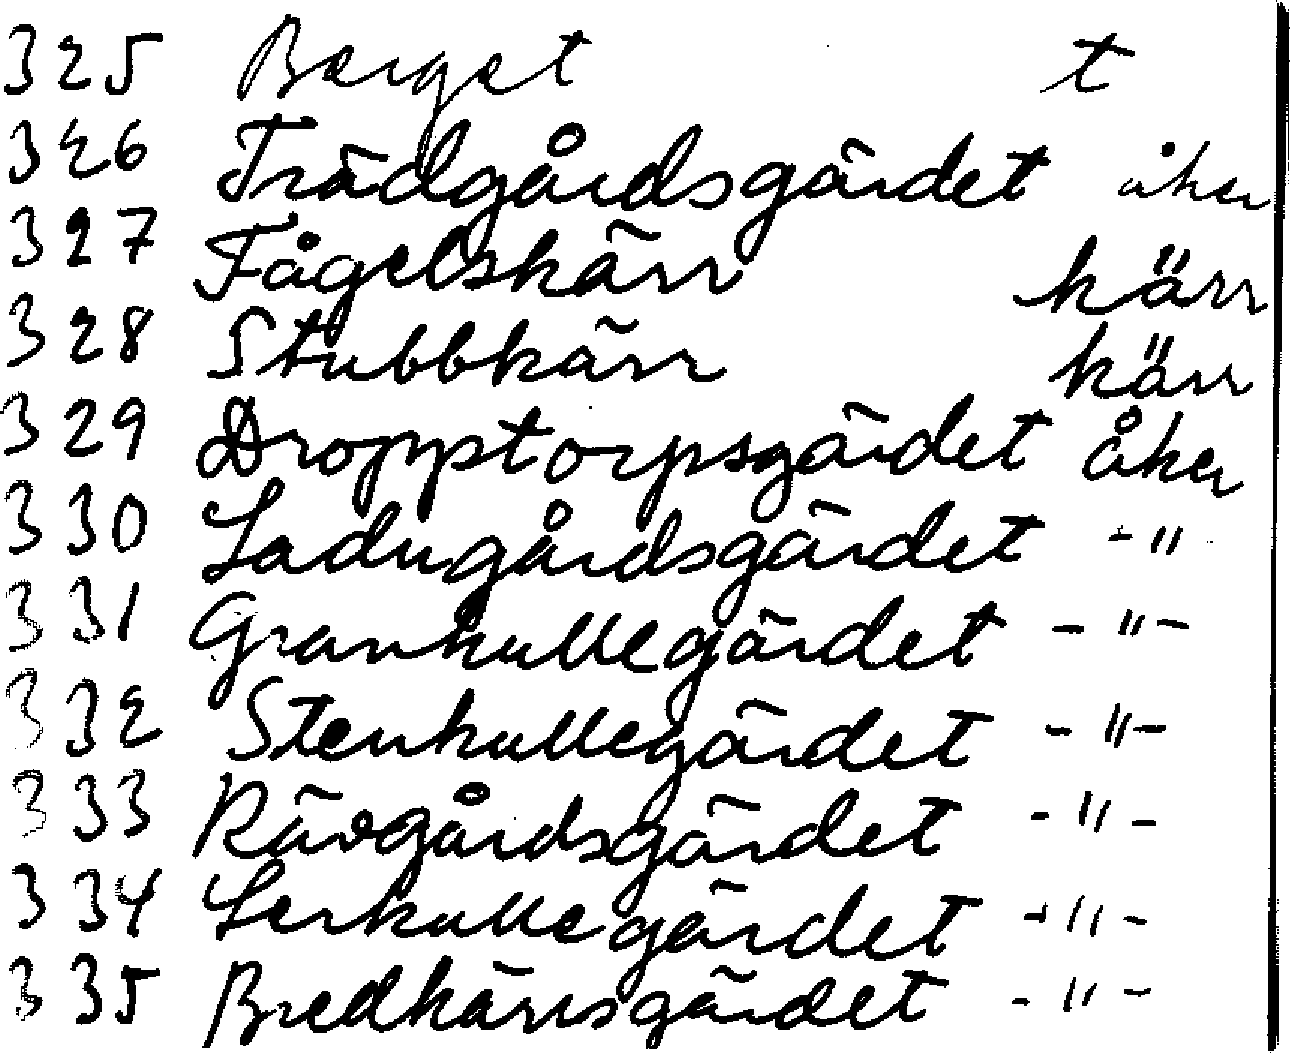 325 Berget t
326 Trädgårdsgärdet åker
327 Fågelskärr kärr
328 Stubbkärr kärr
329 Dropptorpsgärdet åker
330 Ladugårdsgärdet -"
331 Grankullegärdet -"-
332 Stenkullegärdet -"-
333 Rävgårdsgärdet -"-
334 Lerkullegärdet -"-
335 Bredkärrsgärdet -"-